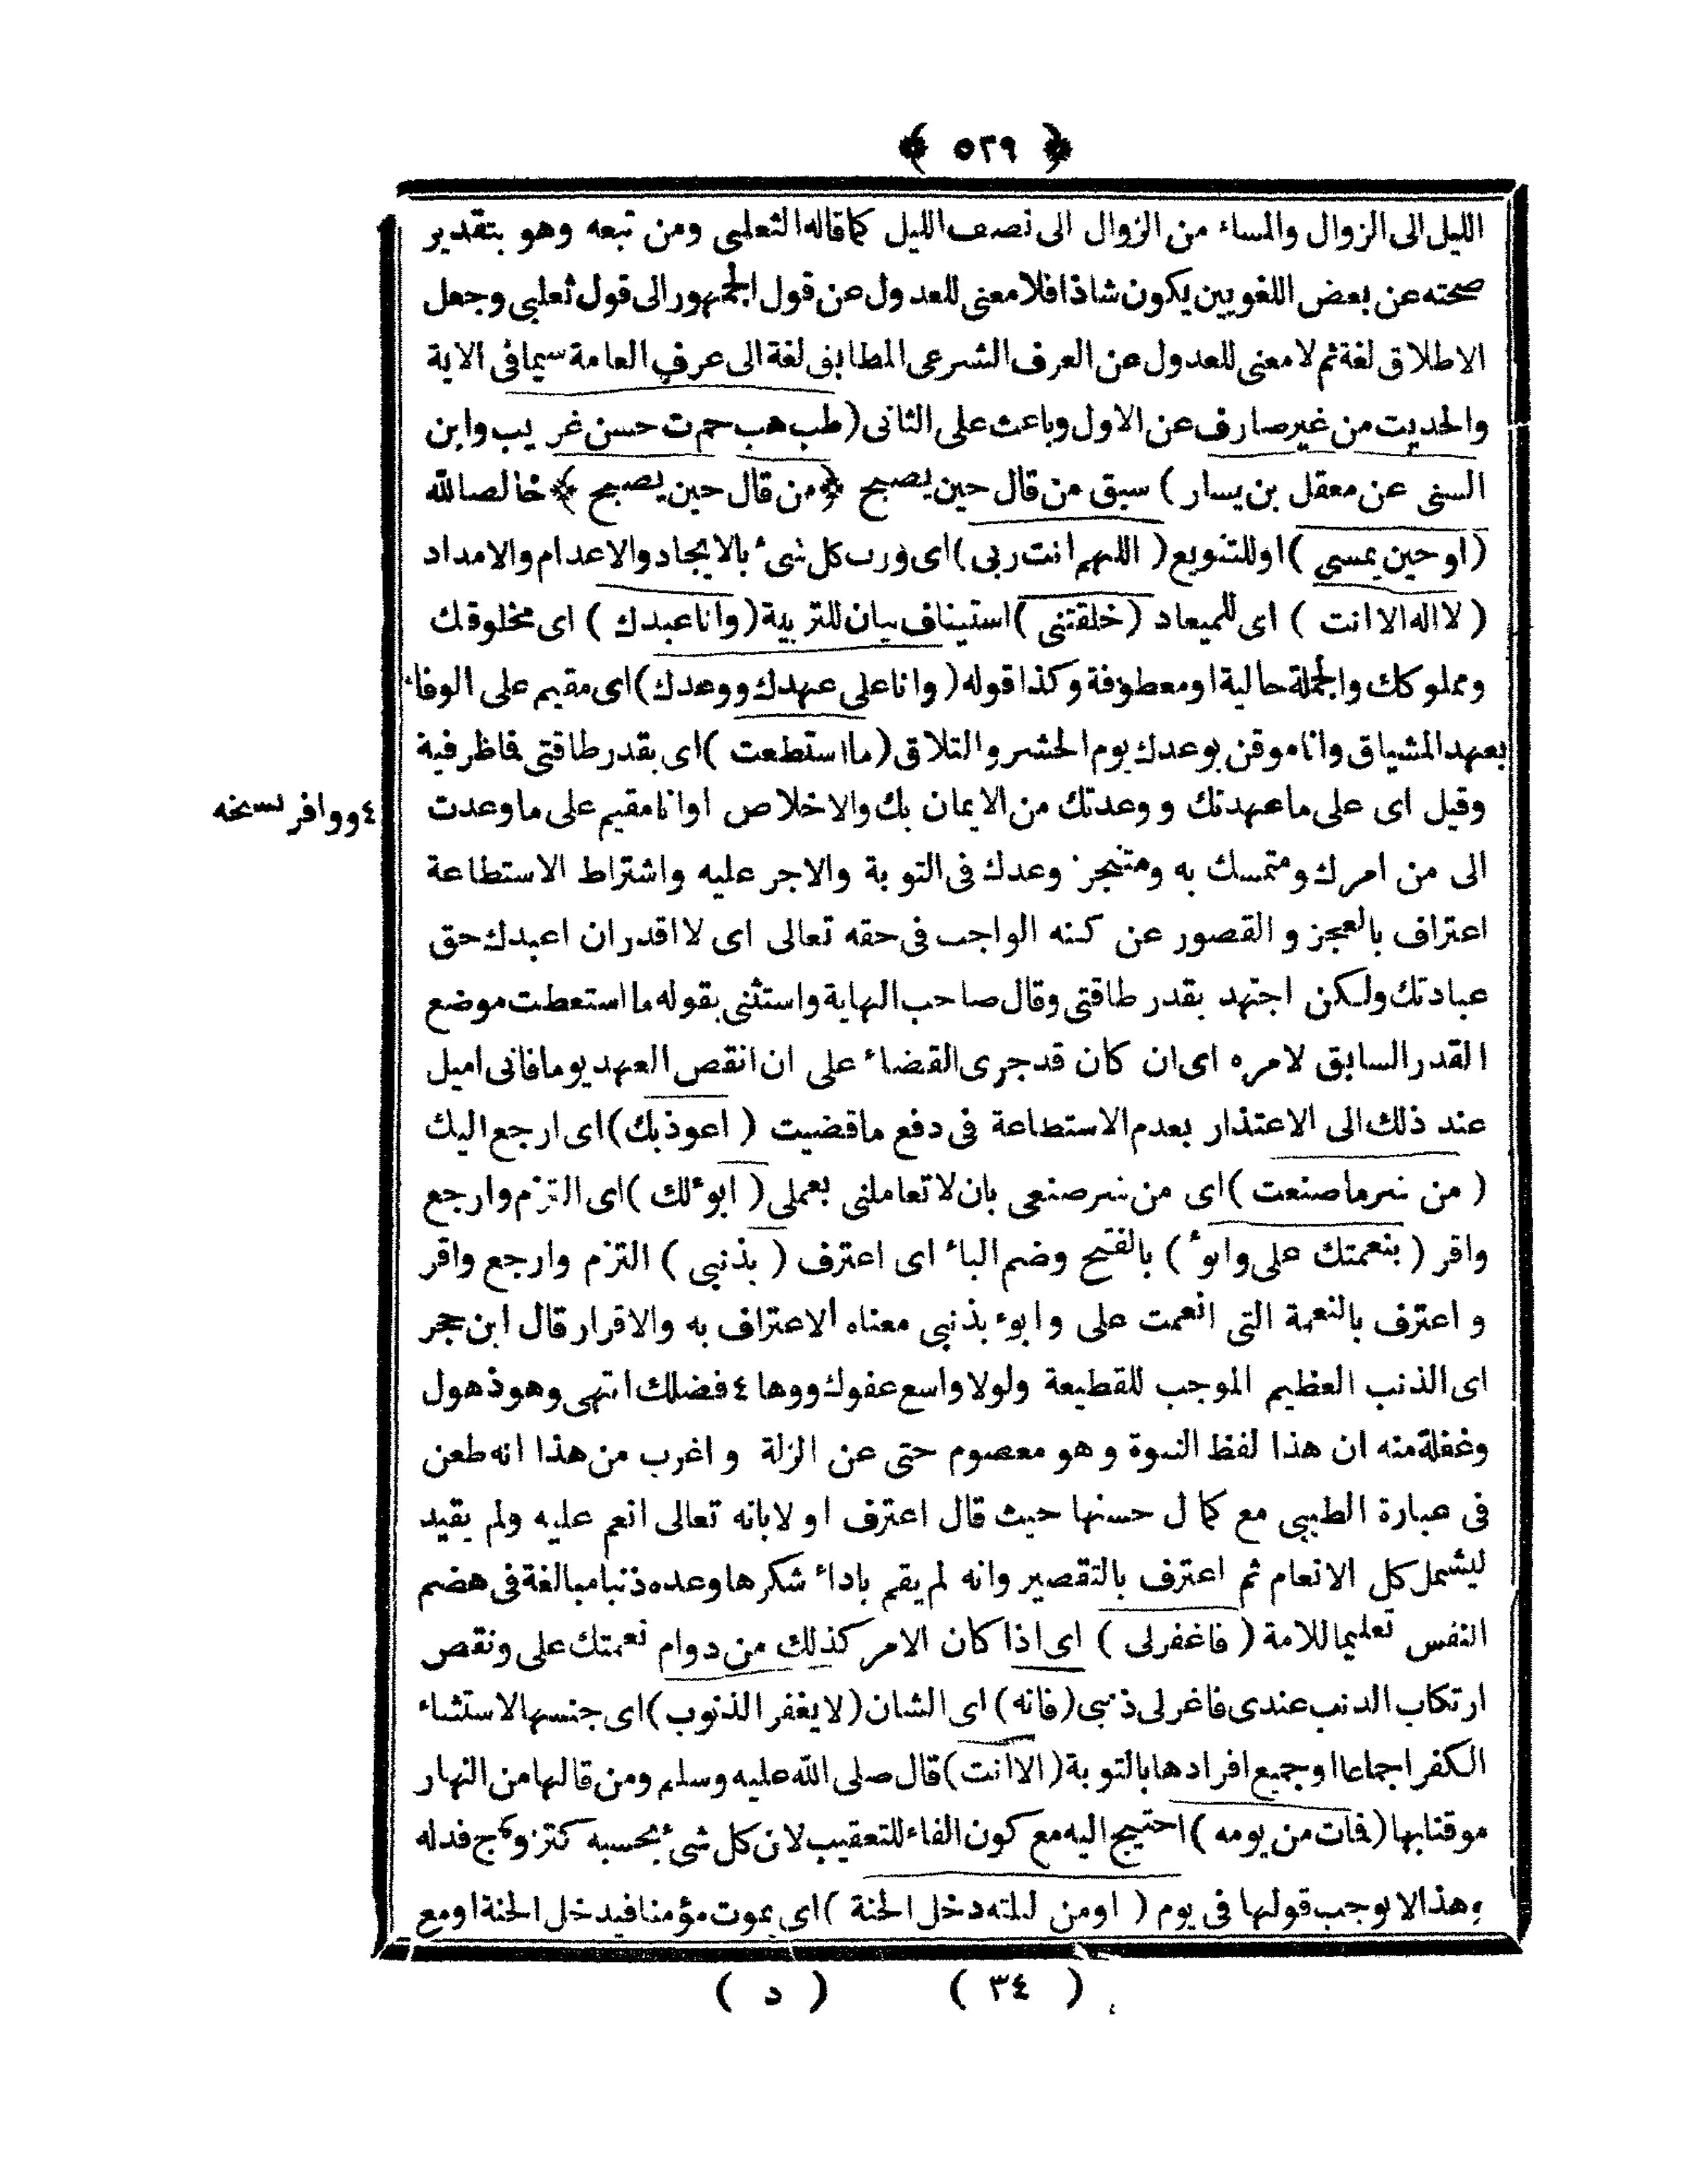 ﴿ ٥٢٩ ﴾
الليل الى الزوال والمساء من الزوال الى نصف الليل كما قاله الثعلبى ومن تبعه وهو بتقدير
صحته عن بعض اللغويين يكون شاذا فلا معنى للعدول عن قول الجمهور الى قول ثعلبى وجعل
الاطلاق لغة ثم لا معنى للعدول عن العرف الشرعى المطابق لغة الى عرف العامة سيما فى الاية
والحديت من غير صارف عن الاول وباعث على الثانى (طب هب حم ت حسن غريب وابن
السنى عن معقل بن يسار) سبق من قال حين يصبح ﴿من قال حين يصبح﴾ خالصا لله
(او حين يمسى) او للتنويع (اللهم انت ربى) اى ورب كل شىء بالايجاد والاعدام والامداد
(لا اله الا انت) اى للميعاد (خلقتنى) استيناف بيان للتربية (وانا عبدك) اى مخلوقك
ومملوكك والجملة حالية او معطوفة وكذا قوله (وانا على عهدك ووعدك) اى مقيم على الوفاء
بعهد المشياق وانا موقن بوعدك يوم الحشر والتلاق (ما استطعت) اى بقدر طاقتى فاظرفية
وقيل اى على ما عهدتك ووعدتك من الايمان بك والاخلاص او انا مقيم على ما وعدت
٤ ووافر نسخه
الى من امرك ومتمسك به ومتنجز وعدك فى التوبة والاجر عليه واشتراط الاستطاعة
اعتراف بالعجز والقصور عن كنه الواجب فى حقه تعالى اى لا اقدر ان اعبدك حق
عبادتك ولكن اجتهد بقدر طاقتى وقال صاحب النهاية واستثنى بقوله ما استعطت موضع
القدر السابق لامره اى ان كان قد جرى القضاء على ان انقص العهد يوما فانى اميل
عند ذلك الى الاعتذار بعدم الاستطاعة فى دفع ما قضيت (اعوذ بك) اى ارجع اليك
(من شر ما صنعت) اى من شر صنعى بان لا تعاملنى بعملى (ابوء لك) اى التزم وارجع
واقر (بنعمتك على وابوء) بالفتح وضم الباء اى اعترف (بذنبى) التزم وارجع واقر
واعترف بالنعمة التى انعمت على وابوء بذنبى معناه الاعتراف به والاقرار قال ابن حجر
اى الذنب العظيم الموجب للقطيعة ولولا واسع عفوك ووها ٤ فضلك انتهى وهو ذهول
وغفلة منه ان هذا لفظ النبوة وهو معصوم حتى عن الزلة واغرب من هذا انه طعن
فى عبارة الطيبى مع كمال حسنها حيث قال اعترف اولا بانه تعالى انعم عليه ولم يقيد
ليشمل كل الانعام ثم اعترف بالتقصير وانه لم يقم باداء شكرها وعده ذنبا مبالغة فى هضم
النفس تعليما للامة (فاغفر لى) اى اذا كان الامر كذلك من دوام نعمتك على ونقص
ارتكاب الدنب عندى فاغر لى ذنبى (فانه) اى الشان (لا يغفر الذنوب) اى جنسها الاستثناء
الكفر اجماعا او جميع افرادها بالتوبة (الا انت) قال صلى الله عليه وسلم ومن قالها من النهار
موقنا بها (فات من يومه) احتيج اليه مع كون الفاء للتعقيب لان كل شىء بحسبه كتزوج فدله
وهذا لا يوجب قولها فى يوم (او من ليلته دخل الجنة) اى يموت مؤمنا فيدخل الجنة او مع
(٣٤) (د)